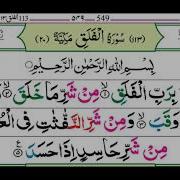 549
(١١٣) سُوْرَةُ الْفَلَقِ مَكِّيَّةٌ (٢٠)
بِسْمِ اللهِ الرَّحْمٰنِ الرَّحِيْمِ
بِرَبِّ الْفَلَقِ ۙ مِنْ شَرِّ مَا خَلَقَ ۙ
وَقَبَ ۙ وَمِنْ شَرِّ النَّفّٰثٰتِ فِي الْعُ
مِنْ شَرِّ حَاسِدٍ اِذَا حَسَدَ